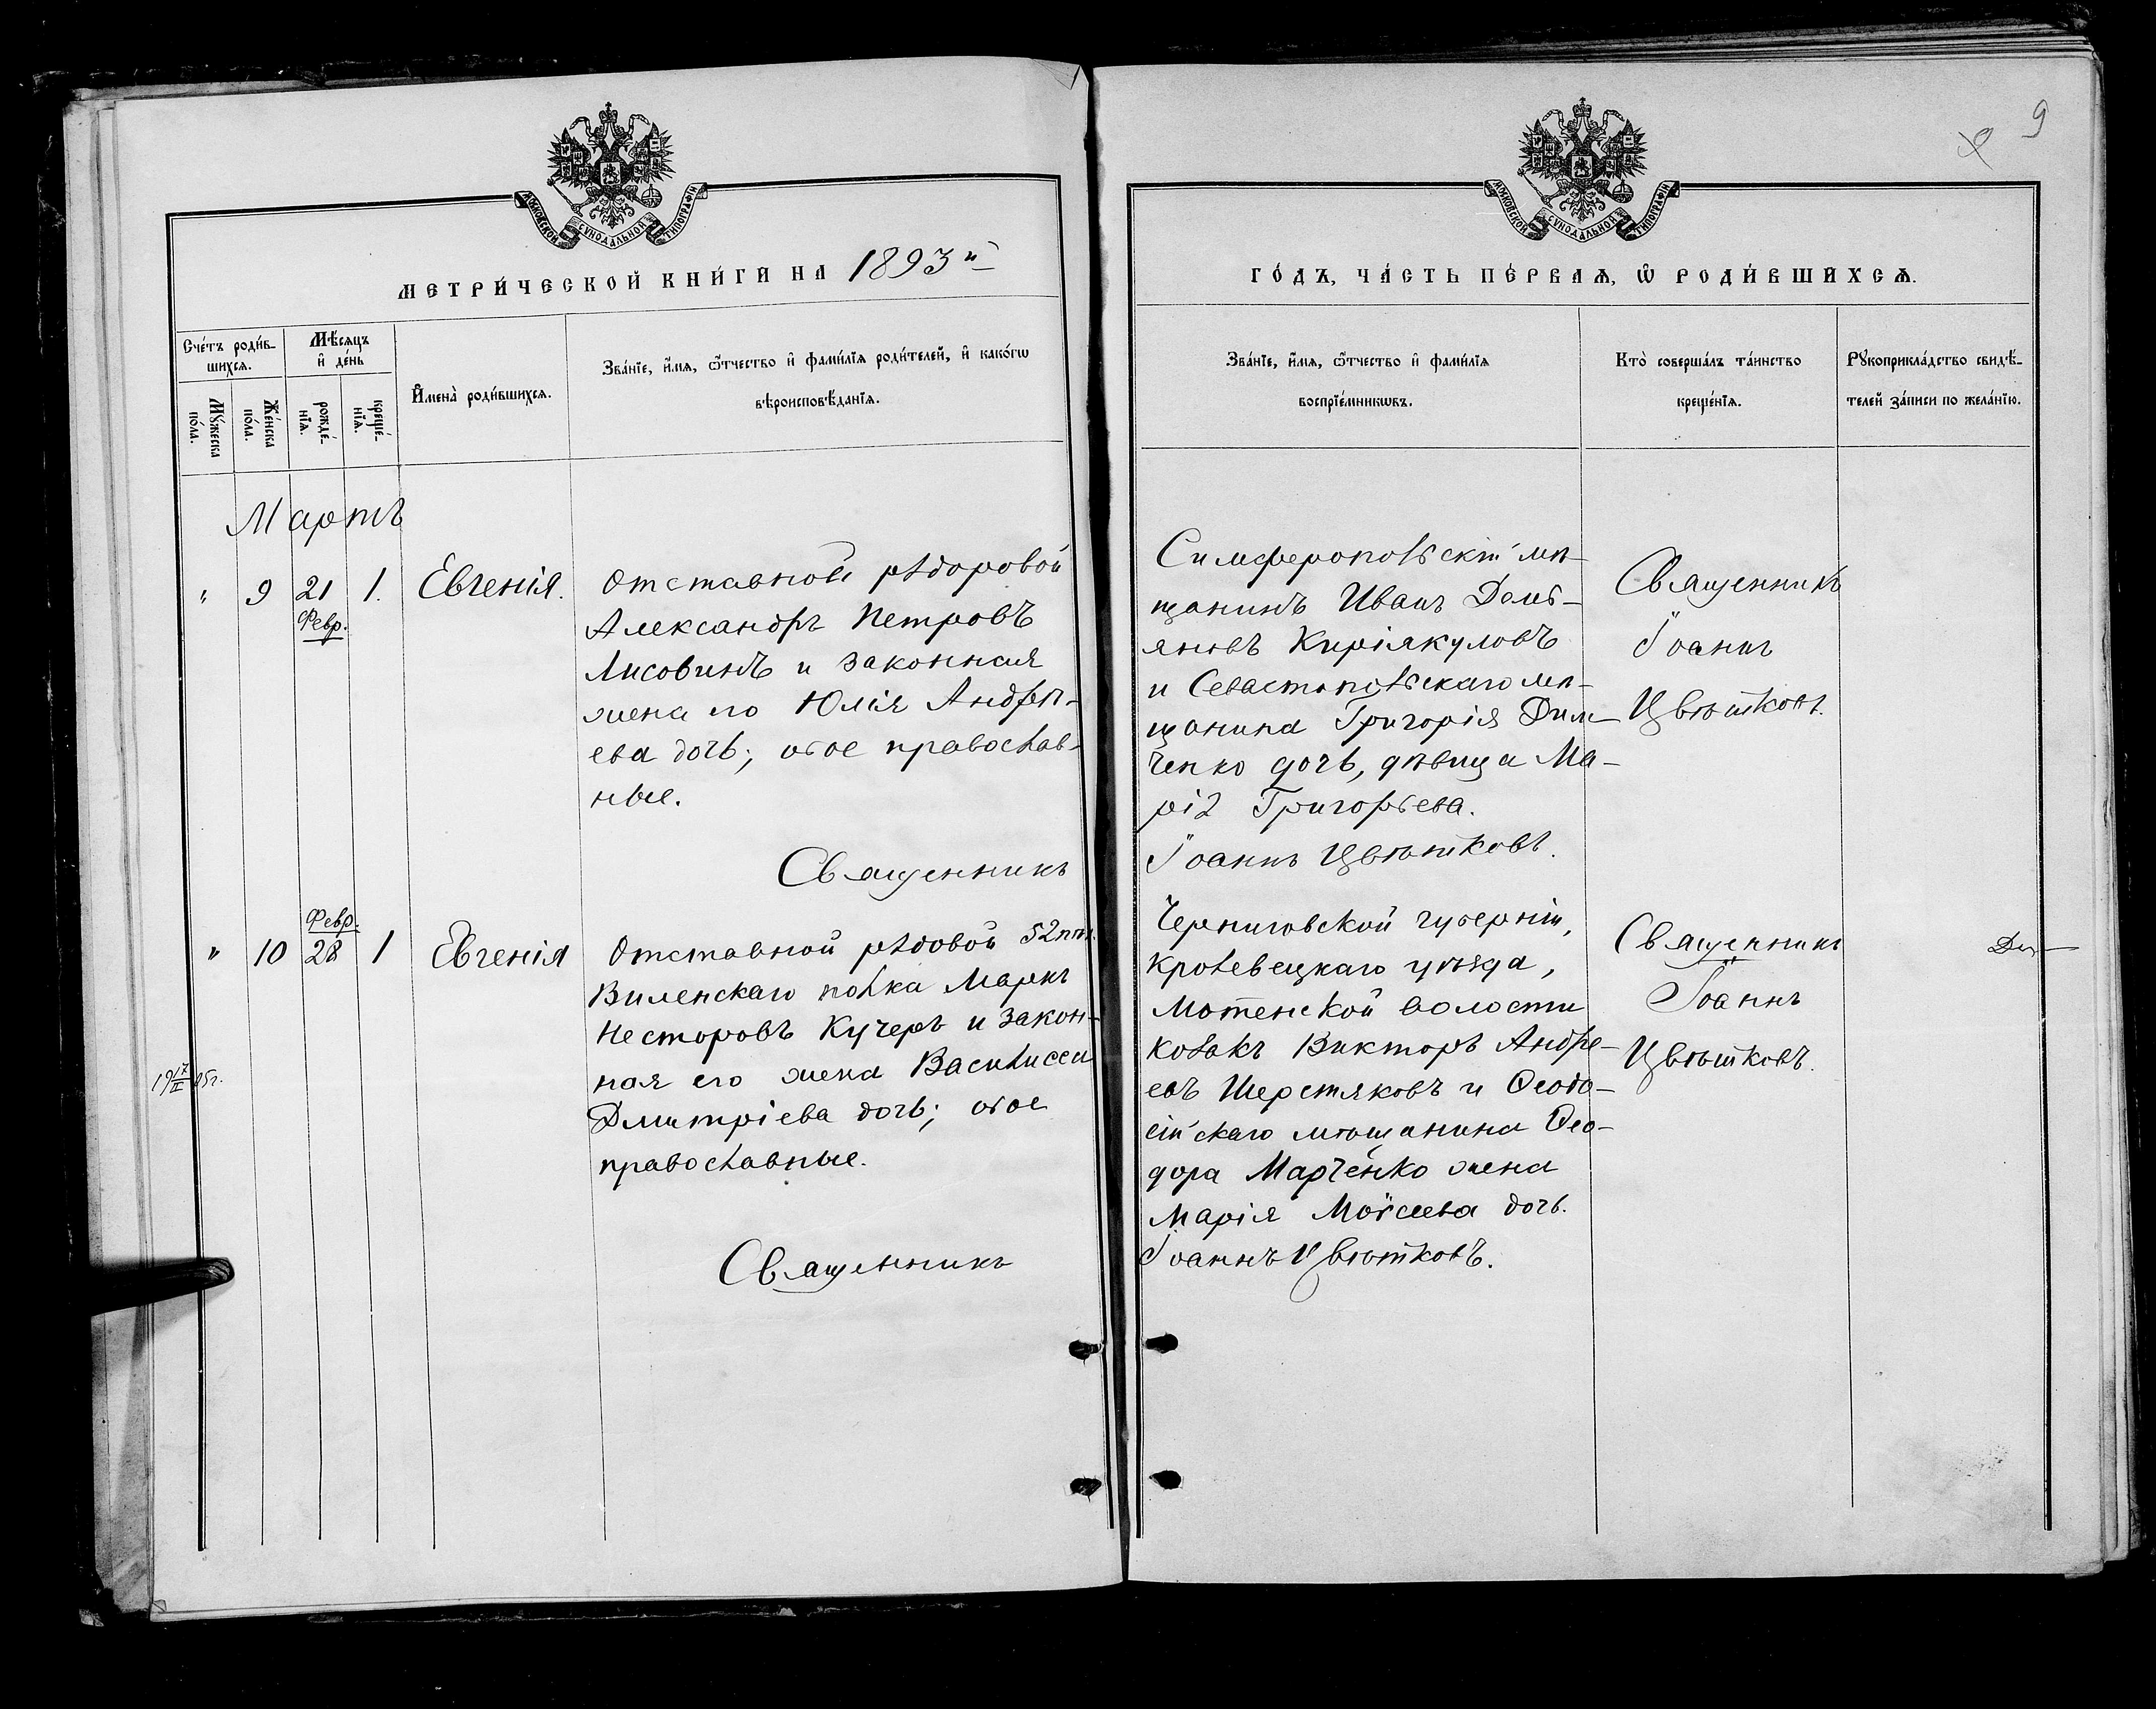 МОСКОВСКОЙ СѴНОДАЛЬНОЙ ТИПОГРАФІИ
МЕТРИ́ЧЕСКОЙ КНИ́ГИ НА 1893й
Сче́тъ роди́в-
шихсѧ.
Мѣ́сѧцъ
и҆ де́нь
И҆мена̀ роди́вшихсѧ.
Зва́нїе, и҆́мѧ, ѻ҆́тчество и҆ фами́лїѧ роди́телей, и҆ како́гѡ
вѣроисповѣ́данїѧ.
Мꙋ́жеска
по́ла.
Же́нска
по́ла.
рожде́-
нїѧ.
креще́-
нїѧ.
Мартъ
" 9 21 1. Евгенія.
Февр.
Отставной рядоровой
Александръ Петровъ
Лисовинъ и законная
жена его Юлія Андре-
ева дочь; обое православ-
ные.
Священникъ
Февр.
" 10 28 1 Евгенія
Отставной рядовой 52 пѣх.
Виленскаго полка Маркъ
Несторовъ Кучеръ и закон-
ная его жена Василисса
Дмитріева дочь; обое
православные.
Священникъ
9
МОСКОВСКОЙ СѴНОДАЛЬНОЙ ТИПОГРАФІИ
ГО́ДЪ, ЧА́СТЬ ПЕ́РВАѦ, Ѡ҆ РОДИ́ВШИХСѦ.
Зва́нїе, и҆́мѧ, ѻ҆́тчество и҆ фами́лїѧ
воспрїе́мникѡвъ.
Кто̀ соверша́лъ та́инство
креще́нїѧ.
Рꙋкоприкла́дство свидѣ́-
телей за́писи по жела́нїю.
Симферопольскій мѣ-
щанинъ Иванъ Демь-
яновъ Киріякуловъ
и Севастопольскаго мѣ-
щанина Григорія Дим-
ченко дочь, дѣвица Ма-
рія Григорьева.
Іоаннъ Цвѣтковъ.
Священникъ
Іоаннъ
Цвѣтковъ.
Черниговской губерніи,
Кролевецкаго уѣзда,
Мотенской волости
козакъ Викторъ Андре-
евъ Шерстяковъ и Ѳеодо-
сійскаго мѣщанина Ѳео-
дора Марченко жена
Марія Моѵсеева дочь.
Іоаннъ Цвѣтковъ.
Священникъ
Іоаннъ
Цвѣтковъ.